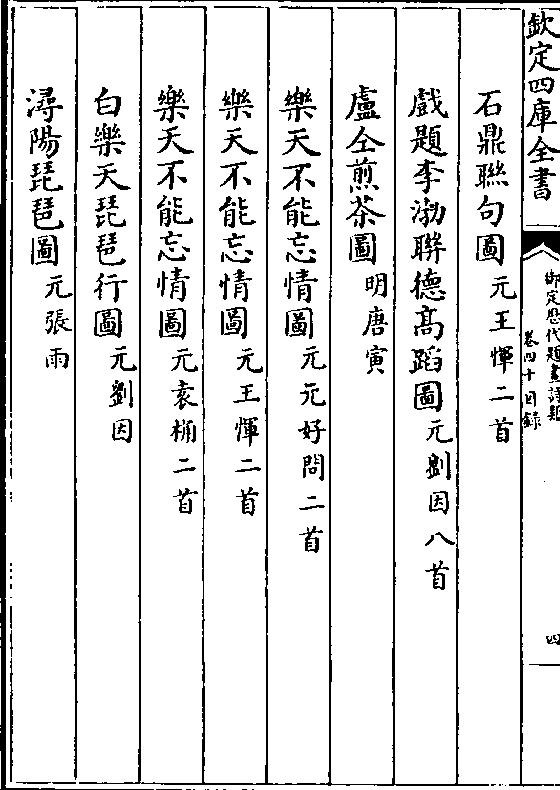 欽定四庫全書
御定歷代題畫詩類
卷四十目錄
四
石鼎聯句圖 元王惲二首
戲題李渤聯德高蹈圖 元劉因八首
盧仝煎茶圖 明唐寅
樂天不能忘情圖 元元好問二首
樂天不能忘情圖 元王惲二首
樂天不能忘情圖 元袁桷二首
白樂天琵琶行圖 元劉因
潯陽琵琶圖 元張雨